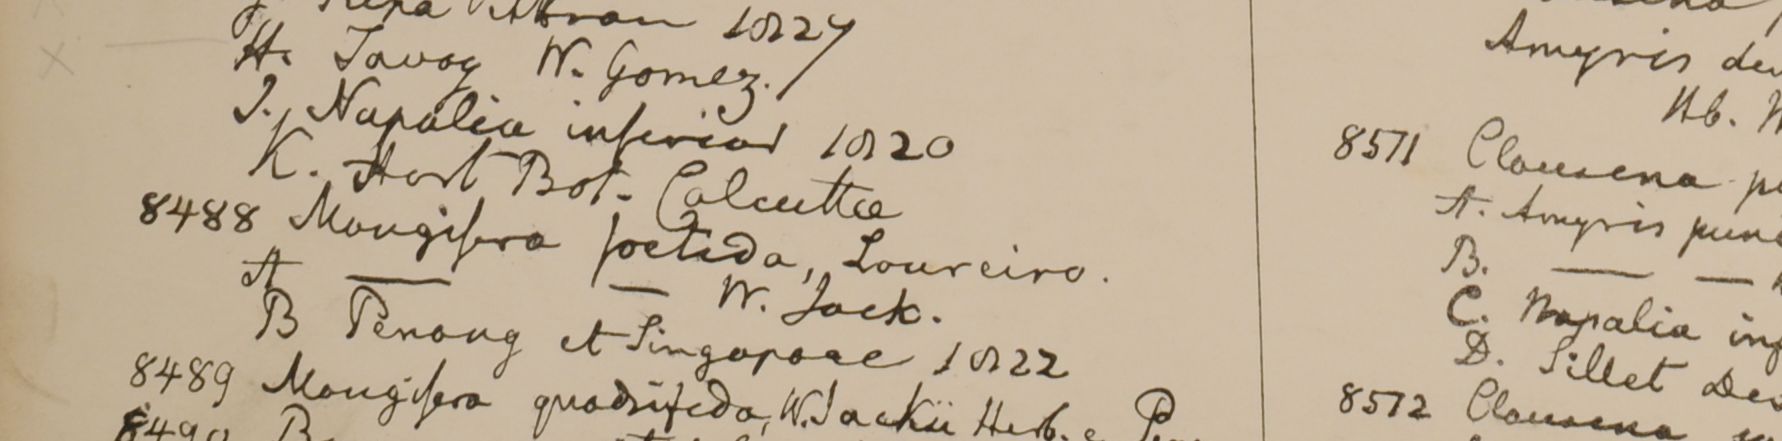 Ripa Attran 1827
H. Tavoy W. Gomez.
I. Napalia inferior 1820
K. Hort Bot. Calcutta
8488 Mangifera foetida, Loureiro.
A — — W. Jack.
B Penang et Singapore 1822
8489 Mangifera quadrifida, W. Jackii Herb. e
8490
Amyris
Hb.
8571 Clausena
A. Amyris
B. — —
C. Napalia
D. Sillet
8572 Clausena